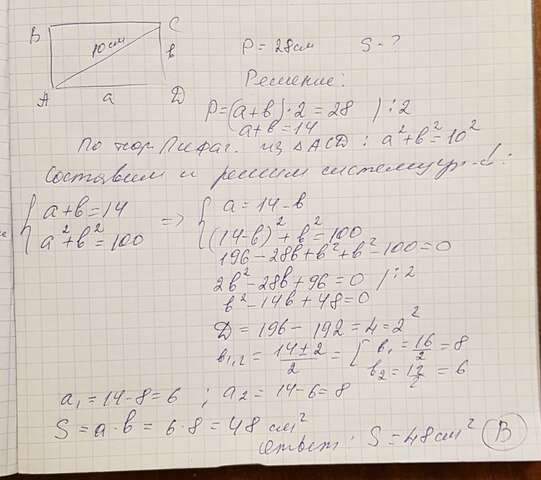 B C
10 см
b
A a D
P = 28 см S - ?
Решение:
P = (a + b) · 2 = 28 / : 2
a + b = 14
По теор. Пифаг. из △ACD : a² + b² = 10²
Составим и решим систему ур-в:
{ a + b = 14
a² + b² = 100
=> { a = 14 - b
(14 - b)² + b² = 100
196 - 28b + b² + b² - 100 = 0
2b² - 28b + 96 = 0 / : 2
b² - 14b + 48 = 0
D = 196 - 192 = 4 = 2²
b₁,₂ = (14 ± 2)/2 = [ b₁ = 16/2 = 8
b₂ = 12/2 = 6
a₁ = 14 - 8 = 6 ; a₂ = 14 - 6 = 8
S = a · b = 6 · 8 = 48 см²
Ответ: S = 48 см² (В)